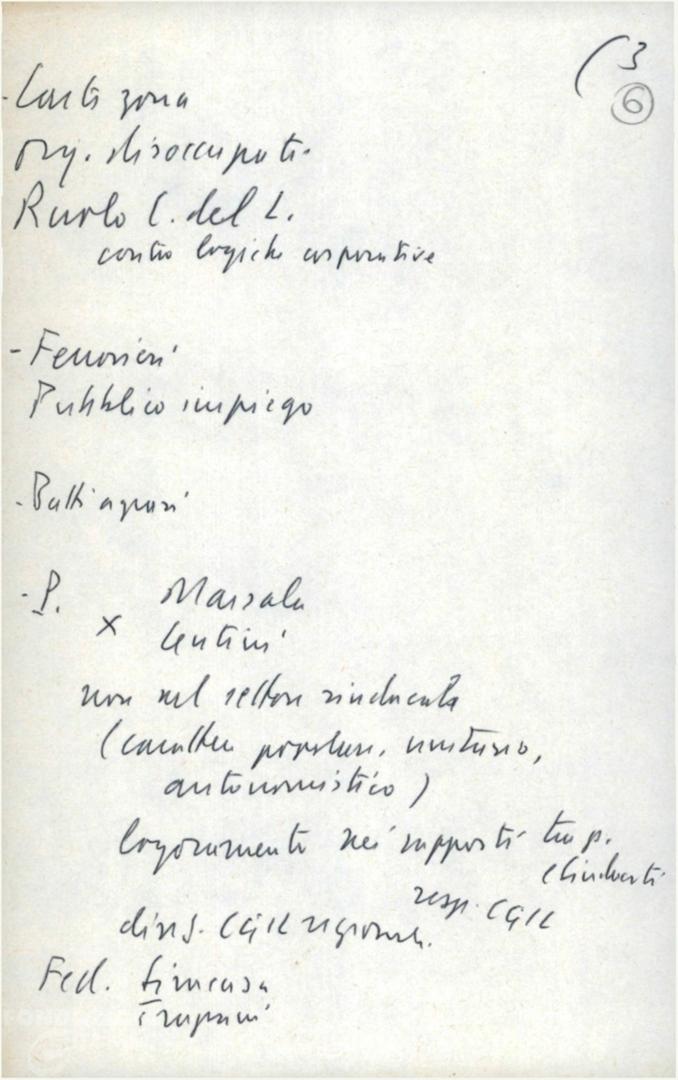 (3
6
- Conti zona
org. disoccupati
Ruolo C. del L.
contro logiche corporative
- Ferrovieri
Pubblico impiego
- Patti agrari
- P. Marsala
x Lentini
non nel settore sindacale
(carattere popolare, unitario,
autonomistico)
logoramento nei rapporti tra p.
e sindacati
resp. CGIL
direz. CGIL regionale.
Fed. Siracusa
Trapani